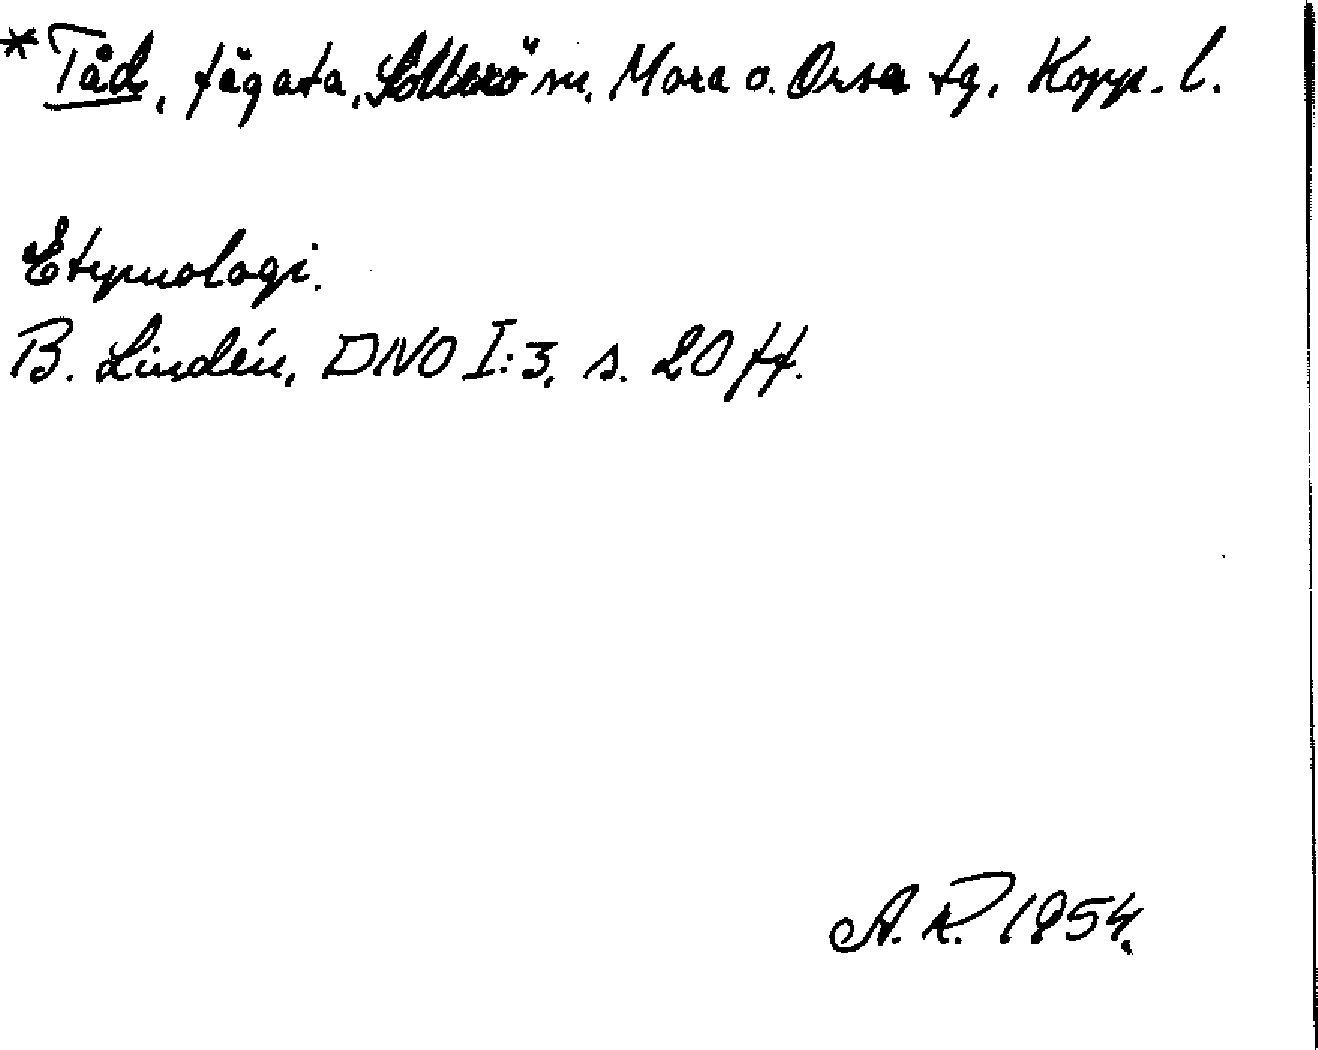 *Tåd, fägata, Sollerö sn, Mora o. Orsa tg. Kopp. l.
Etymologi.
B. Lindén, DNO I:3, s. 20 ff.
A. R. 1954.